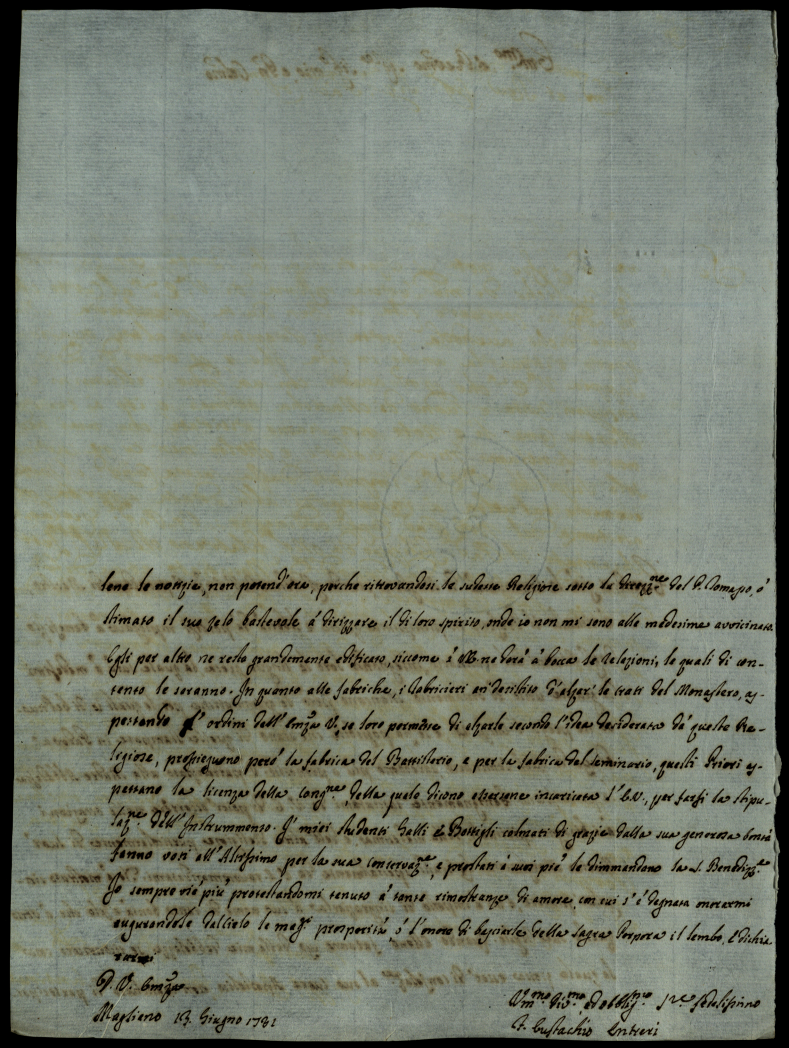 lene le notizie, non potend'ora, perche ritrovandosi le sudette Religiose sotto la direzz.ne del P. Tomaso, ò
stimato il suo zelo bastevole á dirizzare il di loro spirito, onde io non mi sono alle medesime avvicinato.
Egli per altro ne resta grandemente edificato, siccome á darà à bocca le relazioni, le quali di con-
tento le seranno. In quanto alle fabriche, i fabricieri an desistito d'alzar le del Monastero, as-
pettando l'ordini dell'Em.za V. se loro permette di alzarle secondo l'idea desiderata dá queste Re-
ligiose, prosieguono però la fabrica del Battisterio, e per la fabrica del seminario, questi Priori as-
pettano la licenza della Cong.ne, della quale dicono essersene incaricata l'E.V., per farsi la stipu-
laz.ne dell'Instrummento. I miei studenti Galli e Bottigli colmati di grazie dalla sua generosa bontà
fanno voti all'Altissimo per la sua conservaz.ne, e prostrati á suoi piè le dimmandono la S. Benediz.ne
Io sempre viè più protestandomi tenuto á tante rimostranze di amore con cui s'è degnata onorarmi
augurandole dal Cielo le mag.ri prosperità, ò l'onore di bagiarle della sagra Porpora il lembo, e dichia-
rarmi
D. V. Em.za
Magliano 13. Giugno 1781
Um.mo Div.mo, ed obblig.mo S.re fedelissimo
F. Eustachio Intreri